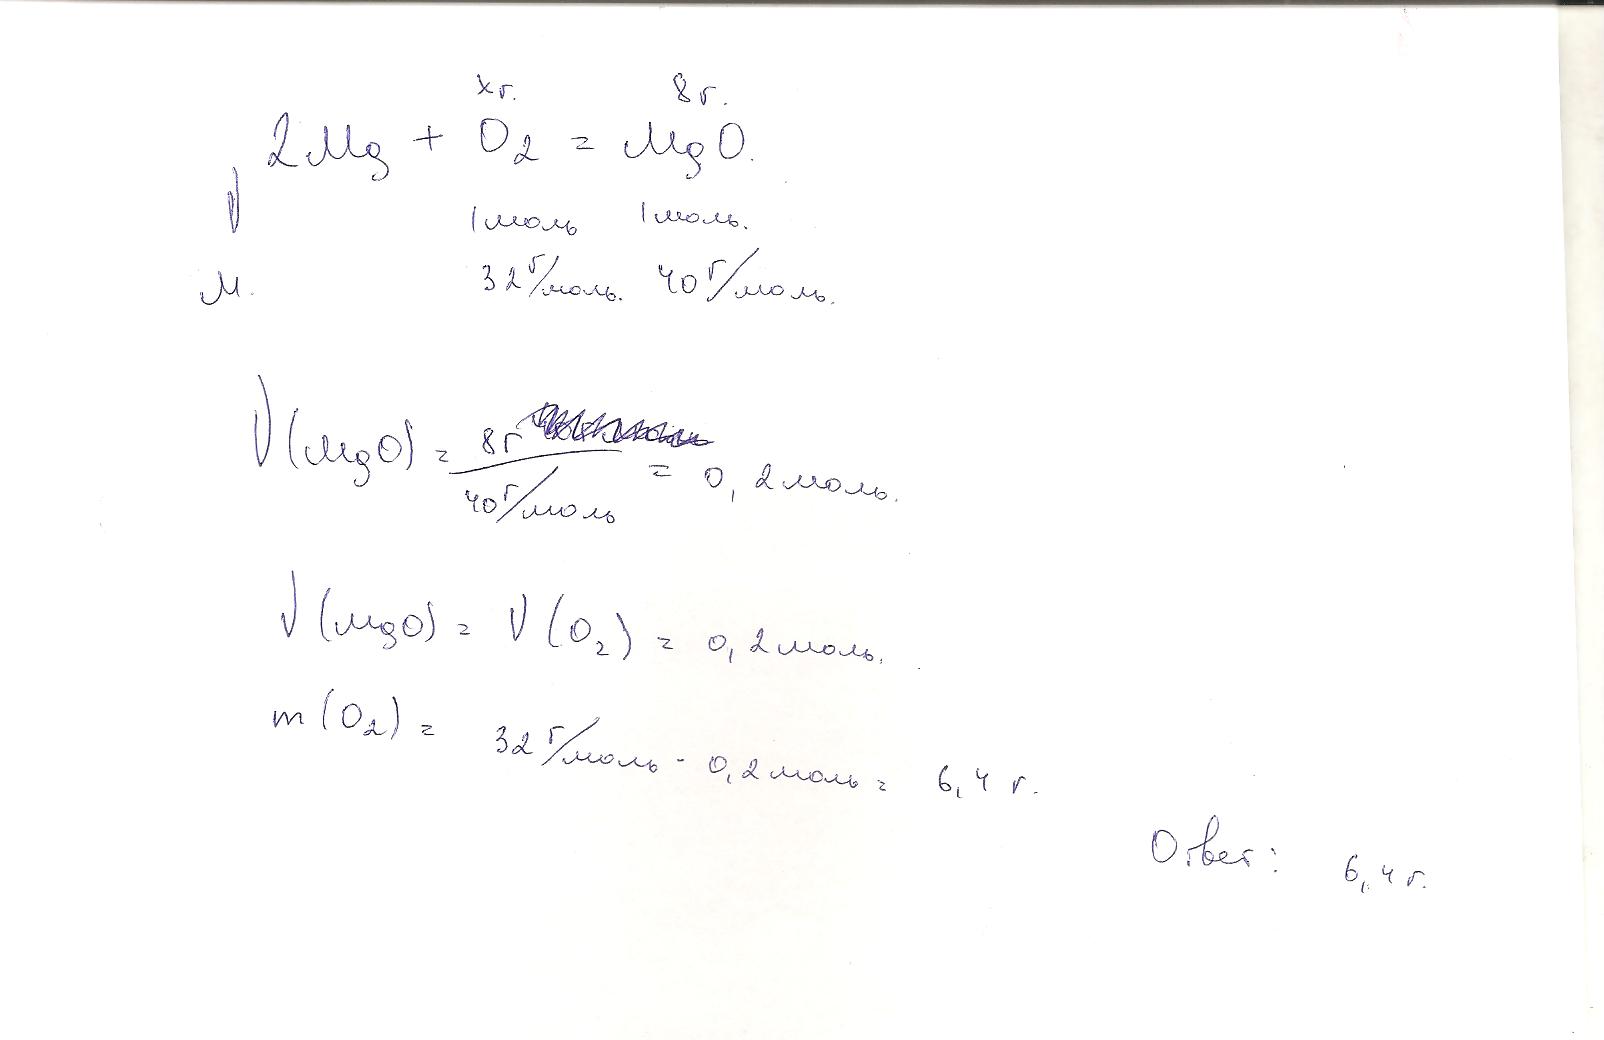 xг. 8г.
2Mg + O2 = MgO.
ν 1моль 1моль.
M. 32г/моль. 40г/моль.
ν(MgO) = 8г/40г/моль = 0,2моль.
ν(MgO) = ν(O2) = 0,2моль.
m(O2) = 32г/моль · 0,2моль = 6,4 г.
Ответ: 6,4 г.